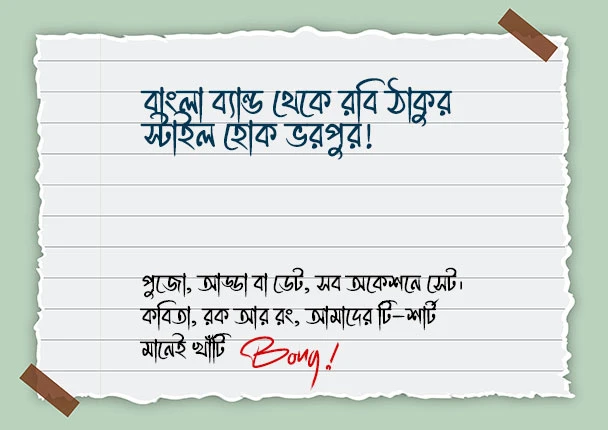 বাংলা ব্যান্ড থেকে রবি ঠাকুর
স্টাইল হোক ভরপুর!
পুজো, আড্ডা বা ডেট, সব অকেশনে সেট।
কবিতা, রক আর রং, আমাদের টি-শার্ট
মানেই খাঁটি Bong!